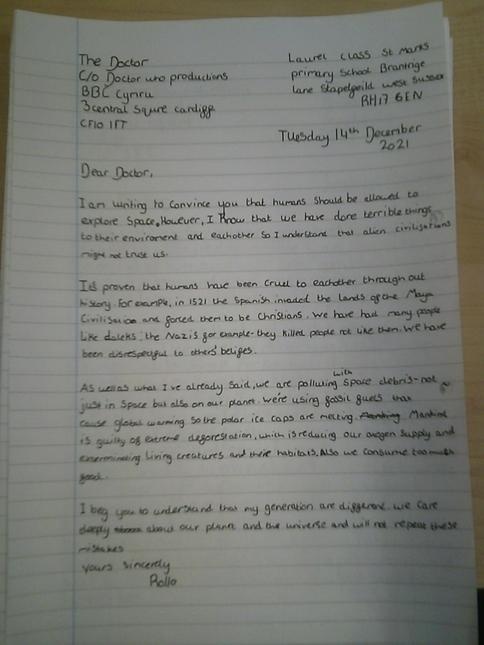 The Doctor
C/o Doctor who productions
BBC Cymru
3 central Squre cardiff
CF10 1FT
Laurel Class St Marks
primary School Brantrige
lane Stapelfeild west Sussex
RH17 6EN
Tuesday 14th December
2021
Dear Doctor,
I am writing to convince you that humans should be allowed to
explore Space. However, I Know that we have done terrible things
to their enviroment and eachother So I understand that alien civilisations
might not trust us.
It's proven that humans have been cruel to eachother through out
history. for example, in 1521 the Spanish invaded the lands of the Maya
Civilisation and forced them to be Christians. We have had many people
like daleks; the Nazis for example-they killed people not like them. We have
been disrespectful to others' beliefs.
As well as what I've already Said, we are polluting with Space debris-not
just in Space but also on our planet. We're using fossil fuels that
cause global warming So the polar ice caps are melting. Mankind
is guilty of extreme deforestation, which is reducing our oxygen supply and
exterminating living creatures and their habitats. Also we consume too much
food.
I beg you to understand that my generation are different. we care
deeply about our planet and the universe and will not repeat these
mistakes
yours sincerely
Rollo